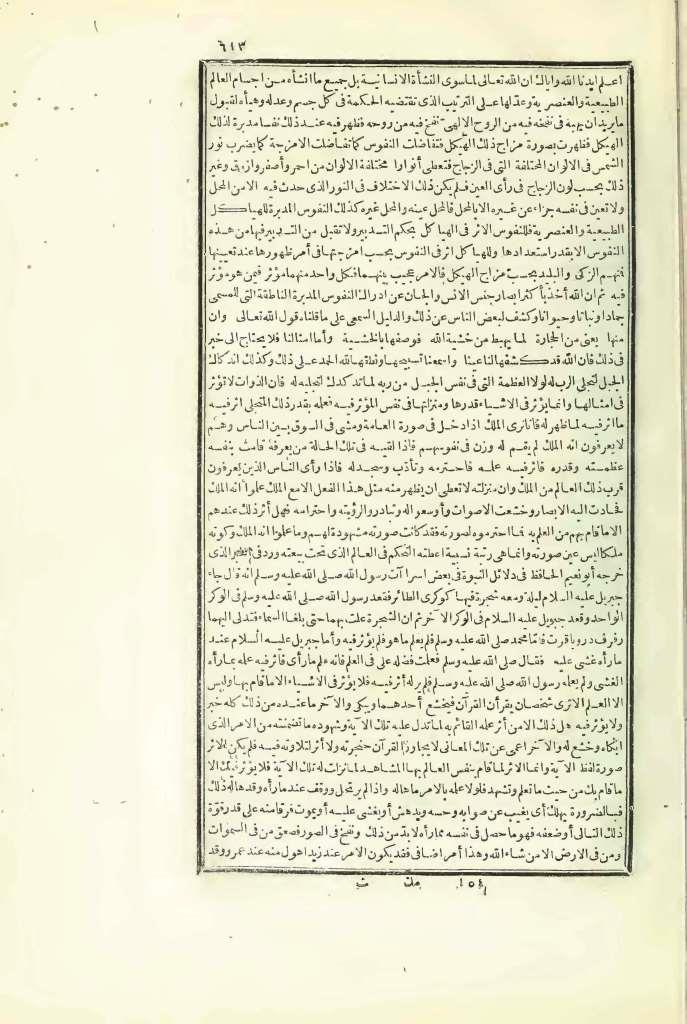 ٦١٣
اعلم ايدنا الله واياك ان الله تعالى لما سوى النشأة الانسانية بل جميع ما انشأه من اجسام العالم
الطبيعية والعنصرية وعدلها على الترتيب الذى تقتضيه الحكمة فى كل جسم وعدله وهيأه لقبول
ما يريد ان يهبه فى نفخه فيه من الروح الالهى نفخ فيه من روحه فظهر فيه عند ذلك نفسا مدبرة لذلك
الهيكل فظهرت بصورة مزاج ذلك الهيكل فتفاضلت النفوس كما تفاضلت الامزجة كما يضرب نور
الشمس فى الالوان المختلفة التى فى الزجاج فتعطى أنوارا مختلفة الالوان من احمر وأصفر وازرق وغير
ذلك بحسب لون الزجاج فى رأى العين فلم يكن ذلك الاختلاف فى النور الذى حدث فيه الا من المحل
ولا تعين فى نفسه جزاء عن غيره الا بالمحل فالمحل عينه والمحل غيره كذلك النفوس المدبرة للهياكل
الطبيعية والعنصرية فللنفوس الاثر فى الهياكل بحكم التدبير ولا تقبل من التدبير فيها من هذه
النفوس الا بقدر استعدادها وللهياكل اثر فى النفوس بحسب امزجتها فى أمر ظهورها عند تعينها
فمنهم الزكى والبليد بحسب مزاج الهيكل فالامر عجيب بينهما فكل واحد منهما مؤثر فيمن هو مؤثر
فيه ثم ان الله أخذ بأكثر ابصار جنس الانس والجان عن ادراك النفوس المدبرة الناطقة التى للمسمى
جمادا ونباتا وحيوانا وكشف لبعض الناس عن ذلك والدليل السمعى على ما قلناه قول الله تعالى وان
منها يعنى من الحجارة لما يهبط من خشية الله فوصفها بالخشية وأما امثالنا فلا يحتاج الى خبر
فى ذلك فان الله قد كشفها لنا عينا واسمعنا تسبيحها ونطقها لله الحمد على ذلك وكذلك اندكاك
الجبل لتجلى الرب له لولا العظمة التى فى نفس الجبل من ربه لما تدكدك لتجليه له فان الذوات لا تؤثر
فى امثالها وانما يؤثر فى الاشياء قدرها ومنزلتها فى نفس المؤثر فيه فعلمه بقدر ذلك المتجلى اثر فيه
ما اثر فيه لما ظهر له فانا نرى الملك اذا دخل فى صورة العامة ومشى فى السوق بين الناس وهم
لا يعرفون انه الملك لم يقم له وزن فى نفوسهم فاذا لقيه فى تلك الحالة من يعرفه قامت بنفسه
عظمته وقدره فاثر فيه علمه فاحترمه وتأدب وسجد له فاذا رأى الناس الذين يعرفون
قرب ذلك العالم من الملك وان منزلته لا تعطى ان يظهر منه مثل هذا الفعل الا مع الملك علموا انه الملك
فحادت اليه الابصار وخشعت الاصوات وأوسعوا له وتبادروا لرؤيته واحترامه فهل أثر ذلك عندهم
الا ما قام بهم من العلم به فما احترموه لصورته فقد كانت صورته مشهودة لهم وما علموا انه الملك وكونه
ملكا ليس عين صورته وانما هى رتبة نسبية اعطته التحكم فى العالم الذى تحت بيعته وورد فى الخبر الذى
خرجه أبو نعيم الحافظ فى دلائل النبوة فى بعض اسرآت رسول الله صلى الله عليه وسلم انه قال جاء
جبريل عليه السلام ليلة ومعه شجرة فيها كوكرى الطائر فقعد رسول الله صلى الله عليه وسلم فى الوكر
الواحد وقعد جبريل عليه السلام فى الوكر الآخر ثم ان الشجرة علت بهما حتى بلغا السماء فتدلى اليهما
رفرف در وياقوت فاما محمد صلى الله عليه وسلم فلم يعلم ما هو فلم يؤثر فيه وأما جبريل عليه السلام عند
ما رآه غشى عليه فقال صلى الله عليه وسلم فعلمت فضله على فى العلم فانه علم ما رأى فاثر فيه علمه بما رآه
الغشى ولم يعلمه رسول الله صلى الله عليه وسلم فلم ير له أثر فيه فلا يؤثر فى الاشياء الا ما قام بها وليس
الا العلم الا ترى شخصان يقرأن القرآن فيخشع أحدهما ويبكى والآخر ما عنده من ذلك كله خبر
ولا يؤثر فيه هل ذلك الا من أثر علمه القائم به لما تدل عليه تلك الآية وشهوده ما تضمنته من الامر الذى
ابكاه وخشع له والآخر اعمى عن تلك المعانى لا يجاوز القرآن حنجرته ولا أثر لتلاوته فيه فلم يكن الاثر
صورة لفظ الآية وانما الاثر لما قام بنفس العالم بها المشاهد لما نزلت له تلك الآية فلا يؤثر فيك الا
ما قام بك من حيث ما تعلم وتشهد فلولا علمه بالامر ما هاله واذا لم يرتحل ووقف عند ما رآه وقد هاله ذلك
فبالضرورة يهلك أى يغيب عن صوابه وحسه ويدهش أو يغشى عليه أو يموت فرقا منه على قدر قوة
ذلك التالى أو ضعفه فهو ما حصل فى نفسه مما رآه لا بد من ذلك ونفخ فى الصور فصعق من فى السموات
ومن فى الارض الا من شاء الله وهذا أمر اضافى فقد يكون الامر عند زيد اهول منه عند عمرو وقد
١٥٤ مك ث